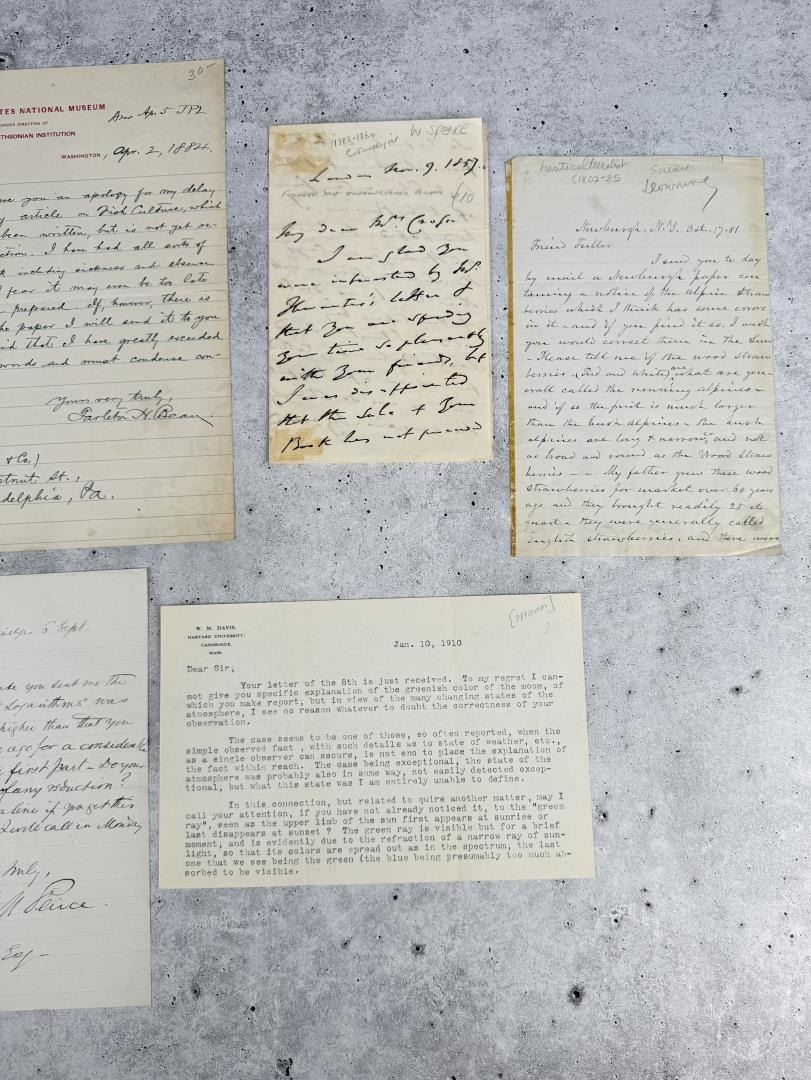 30-
TES NATIONAL MUSEUM
UNDER DIRECTION OF
THSONIAN INSTITUTION
WASHINGTON, Apr. 2, 1884.
ve you an apology for my delay
article on Fish Culture, which
been written, but is not yet re-
ction. I have had all sorts of
including sickness and absence
fear it may even be too late
prepared. If, however, there is
he paper I will send it to you
id that I have greatly exceeded
words and must condense con-
Yours very truly,
Tarleton H. Bean.
& Co.)
stnut St.,
adelphia, Pa.
W. SPENCE
1783-1860
Entomologist
London Nov. 9. 1857.
£10
My dear Mrs
I am glad you
were interested by Mr.
letter &
that you are spending
your time so pleasantly
with your friends, but
I was disappointed
that the sale of your
Book has not proved
horticulturalist
(1802-85
Science
Downing
Newburgh. N.Y. Oct. 17. 81
Friend Fuller
I send you to day
by mail a Newburgh paper con
taining a notice of the Alpine Straw
berries which I think has some errors
in it - and if you find it so. I wish
you would correct them in the Sun
- Please tell me if the wood straw
berries - (Red and White) are what are gen
erall called the running alpines -
and if so the fruit is much larger
than the bush alpines - the bush
alpines are long & narrow, and not
as broad and round as the Wood Straw
berries - - My father grew these wood
strawberries for market over 60 years
ago and they brought readily 25 cts
quart - they were generally called
english strawberries. and there were
6 Sept.
you sent me the
Logarithms" was
higher than that you
ago for a considerable
first part - Do your
of any reduction?
a line if you get this
I will call in Monday
truly,
Peirce.
Esq -
[moon]
25
W. M. DAVIS,
HARVARD UNIVERSITY,
CAMBRIDGE,
MASS.
Jan. 10, 1910
Dear Sir;
Your letter of the 8th is just received. To my regret I can-
not give you specific explanation of the greenish color of the moon, of
which you make report; but in view of the many changing states of the
atmosphere, I see no reason whatever to doubt the correctness of your
observation.
The case seems to be one of those, so often reported, when the
simple observed fact , with such details as to state of weather, etc.,
as a single observer can secure, is not eno to place the explanation of
the fact within reach. The case being exceptional, the state of the
atmosphere was probably also in some way, not easily detected excep-
tional; but what this state was I am entirely unable to define.
In this connection, but related to quire another matter, may I
call your attention, if you have not already noticed it, to the "green
ray", seen as the upper limb of the sun first appears at sunrise or
last disappears at sunset ? The green ray is visible but for a brief
moment; and is evidently due to the refraction of a narrow ray of sun-
light, so that its colors are spread out as in the spectrum, the last
one that we see being the green (the blue being presumably too much ab-
sorbed to be visible.